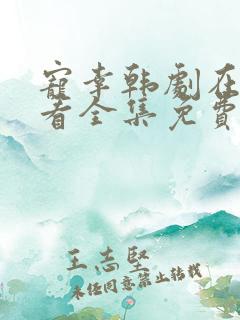 寵李韩劇在
看全集免費
王志堅
未经同意禁止转载